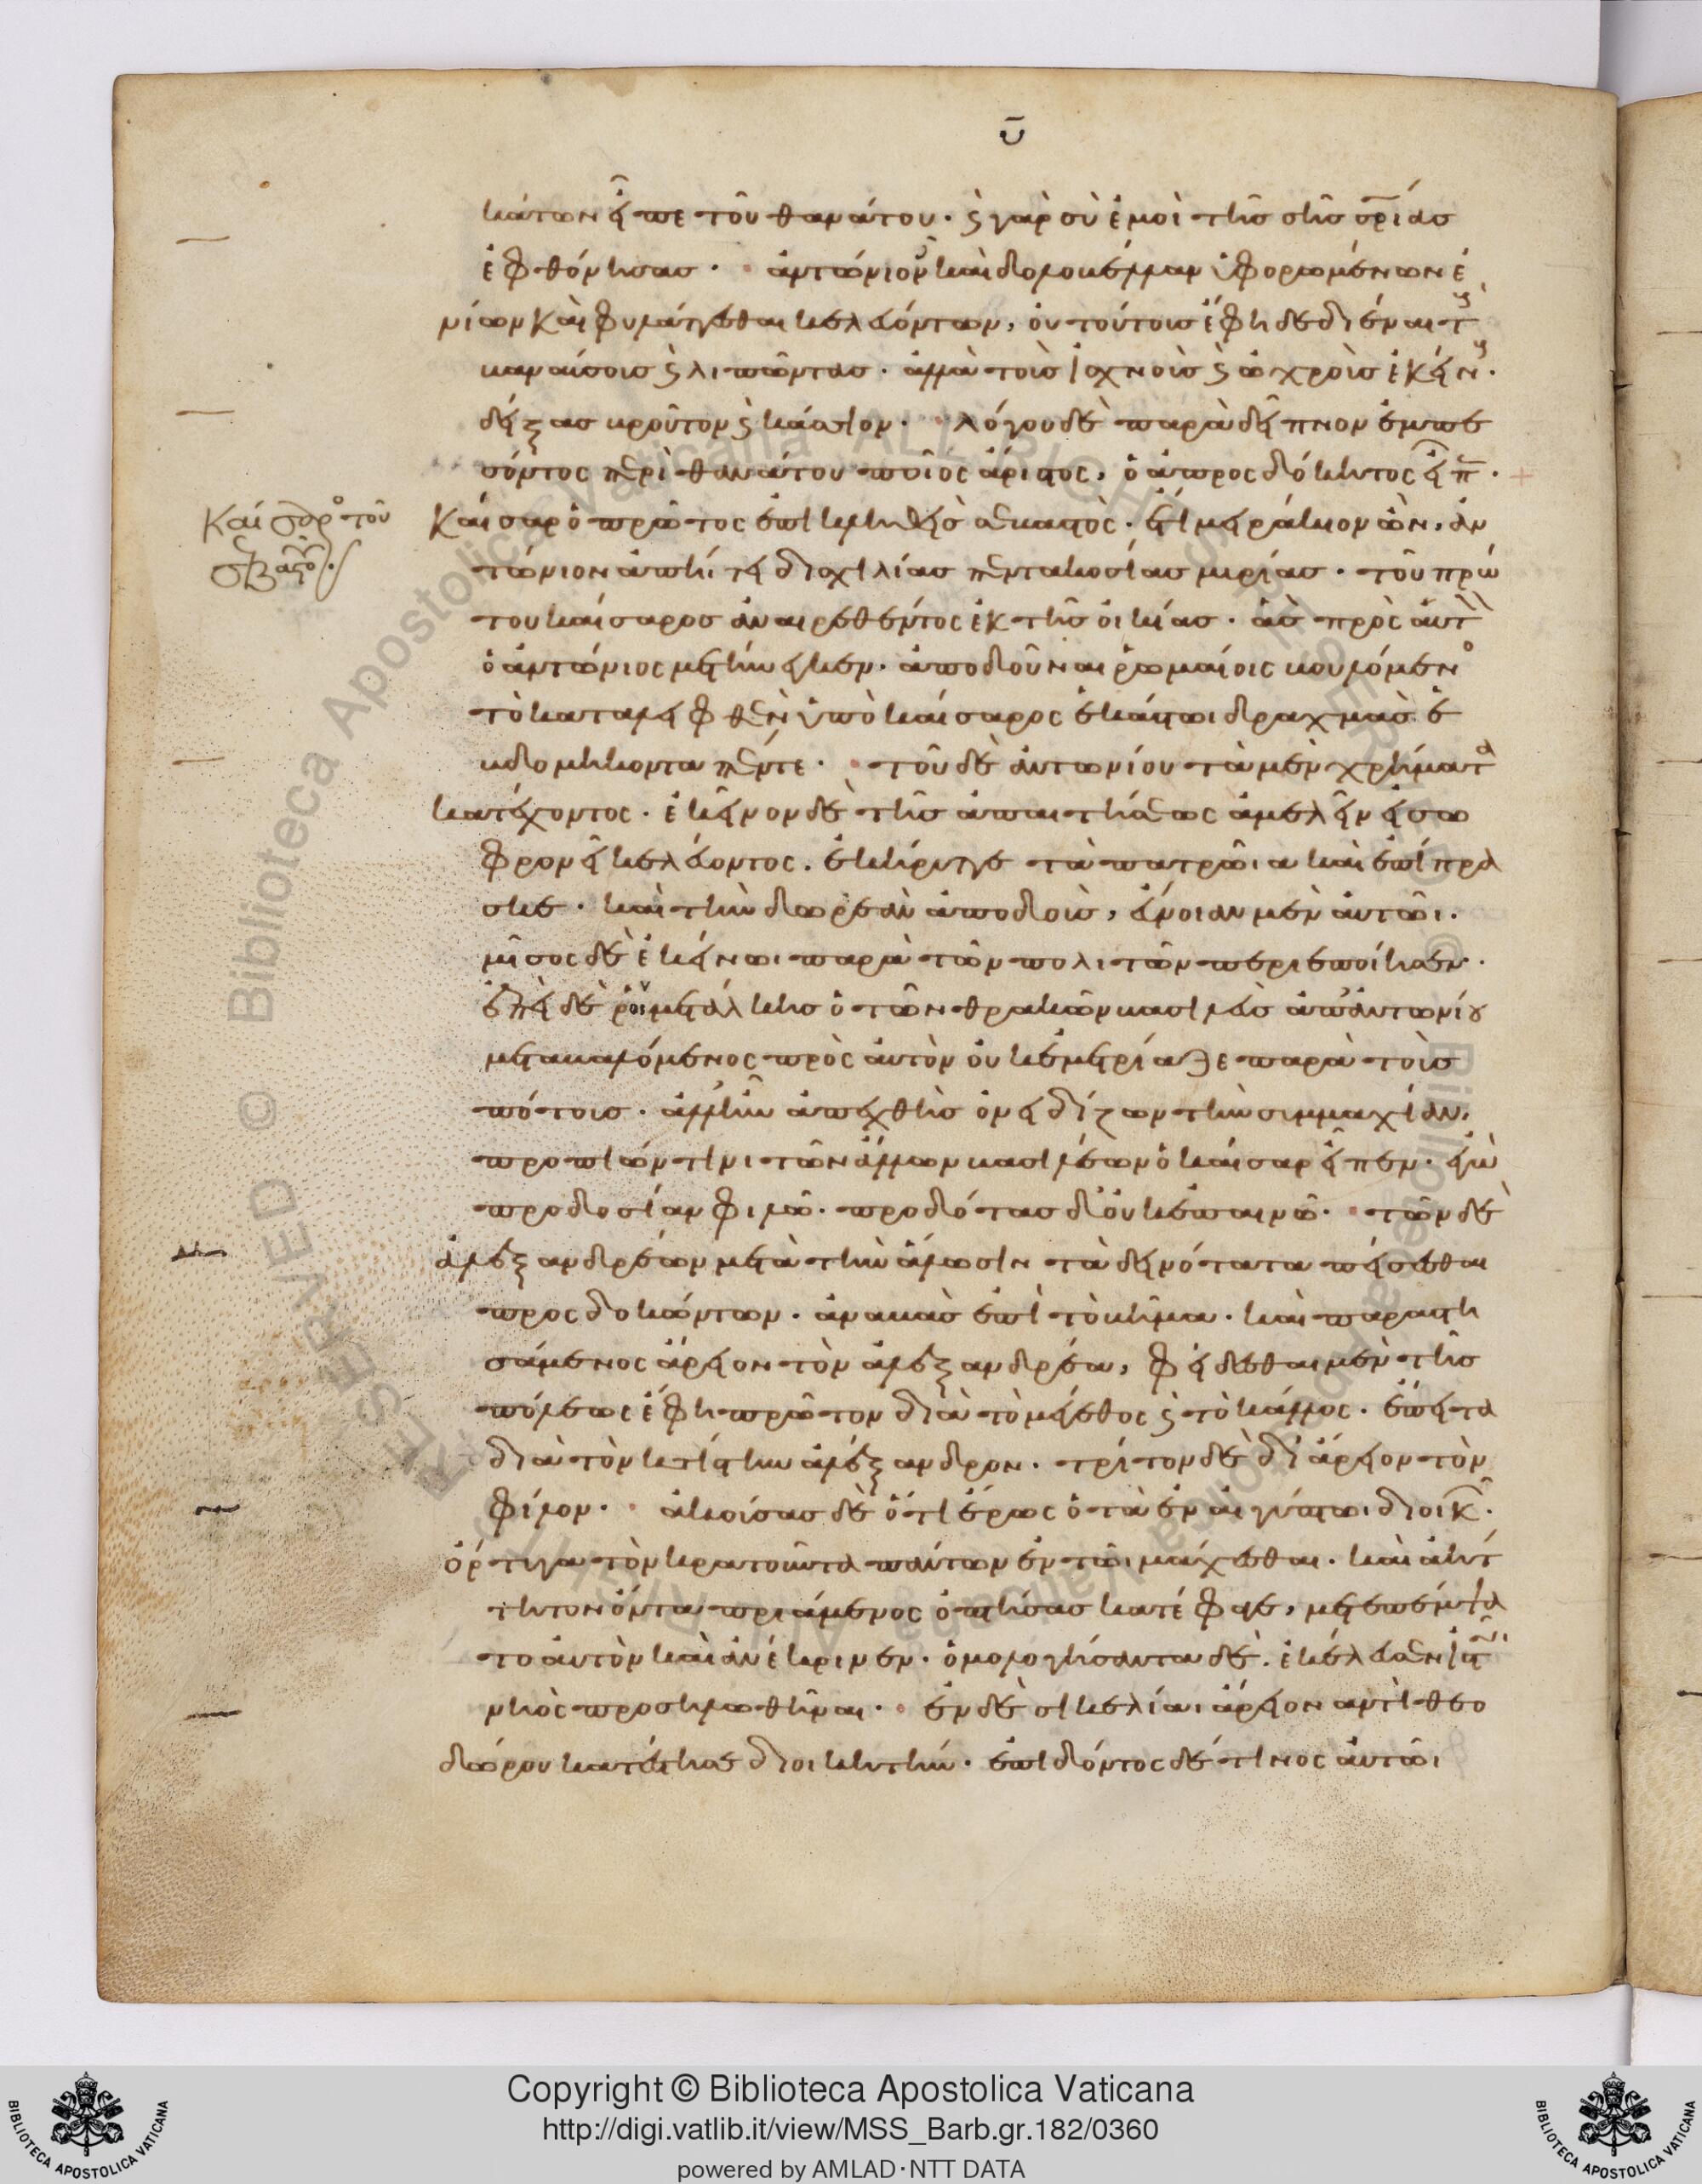 ῡ
κάτων εἶπε τοῦ θανάτου· ϛ γὰρ σὺ ἐμοὶ τῆς σῆς σρίας
ἐφθόνησας· ἀντώνιον καὶ δολοβέλλαν ὑφορωμένων ἐ
νίων καὶ φυλάττεσθαι κελευόντων, οὐ τούτους ἔφη δεδιέναι τ
βαναύσους ϛ λιπῶντας· ἀλλὰ τοὺς ἰσχνοὺς ϛ ὠχροὺς ἐκείν·
δείξας βροῦτον ϛ κάσσιον· λόγου δὲ παρὰ δεῖπνον ἐμπε
σόντος περὶ θανάτου ποῖος ἄριστος, ὁ ἀπροςδόκητος εἶπ·
Καίσαρος τοῦ
σεβαστοῦ
Καῖσαρ ὁ πρῶτος ἐπικληθεὶς σεβαστὸς· ἔτι μειράκιον ὢν, ἀν
τώνιον ἀπῄτει διςχιλίας πεντακοσίας μυριάς· τοῦ πρώ
του καίσαρος ἀναιρεθέντος ἐκ τῆς οἰκίας· ἃς πρὸς αὑτ
ὁ ἀντώνιος μετήνεγκεν· ἀποδοῦναι ῥωμαίοις βουλόμενο
τὸ καταλειφθὲν ὑπὸ καίσαρος ἑκάστωι δραχμὰς ἑ
βδομήκοντα πέντε· τοῦ δὲ ἀντωνίου τὰ μὲν χρήματα
κατέχοντος· ἐκεῖνον δὲ τῆς ἀπαιτήσεως ἀμελεῖν εἰ σω
φρονεῖ κελεύοντος. ἐκήρυττε τὰ πατρῶια καὶ ἐπίπρα
σκε· καὶ τὴν δωρεὰν ἀποδοὺς, εὔνοιαν μὲν αὐτῶι.
μῖσος δὲ ἐκείνωι παρὰ τῶν πολιτῶν περιεποίησεν·
ἐπεὶ δὲ ῥοιμετάλκης ὁ τῶν θρακῶν βασιλεὺς ἀπ ἀντωνίου
μεταβαλόμενος πρὸς αὐτὸν οὐκ ἐμετρίαζε παρὰ τοὺς
πότους· ἀλλ ἦν ἀπεχθὴς ὀνειδίζων τὴν συμμαχίαν,
προπιών τινι τῶν ἄλλων βασιλέων ὁ καῖσαρ εἶπεν· ἐγὼ
προδοσίαν φιλῶ· προδότας δ οὐκ ἐπαινῶ· τῶν δὲ
ἀλεξανδρέων μετὰ τὴν ἅλωσιν τὰ δεινότατα πείσεσθαι
προςδοκώντων· ἀναβὰς ἐπὶ τὸ βῆμα· καὶ παραστη
σάμενος ἄρειον τὸν ἀλεξανδρέα, φείδεσθαι μὲν τῆς
πόλεως ἔφη πρῶτον διὰ τὸ μέγεθος ϛ τὸ κάλλος· ἔπειτα
διὰ τὸν κτίστην ἀλέξανδρον· τρίτον δὲ δι ἄρειον τὸν
φίλον· ἀκούσας δὲ ὅτι ἔρως ὁ τὰ ἐν αἰγύπτωι διοικ
ὄρτυγα τὸν κρατοῦντα πάντων ἐν τῶι μάχεσθαι· καὶ ἀήτ
τητον ὄντα πριάμενος ὀπτήσας κατέφαγε, μετεπέμψα
το αὐτὸν καὶ ἀνέκρινεν· ὁμολογήσαντα δὲ· ἐκέλευσεν ἱστ
νηὸς προσηλωθῆναι· ἐν δὲ σικελίαι ἄρειον ἀντὶ θεο
δώρου κατέστησε διοικητήν· ἐπιδόντος δέ τινος αὐτῶι
Copyright © Biblioteca Apostolica Vaticana
http://digi.vatlib.it/view/MSS_Barb.gr.182/0360
powered by AMLAD·NTT DATA